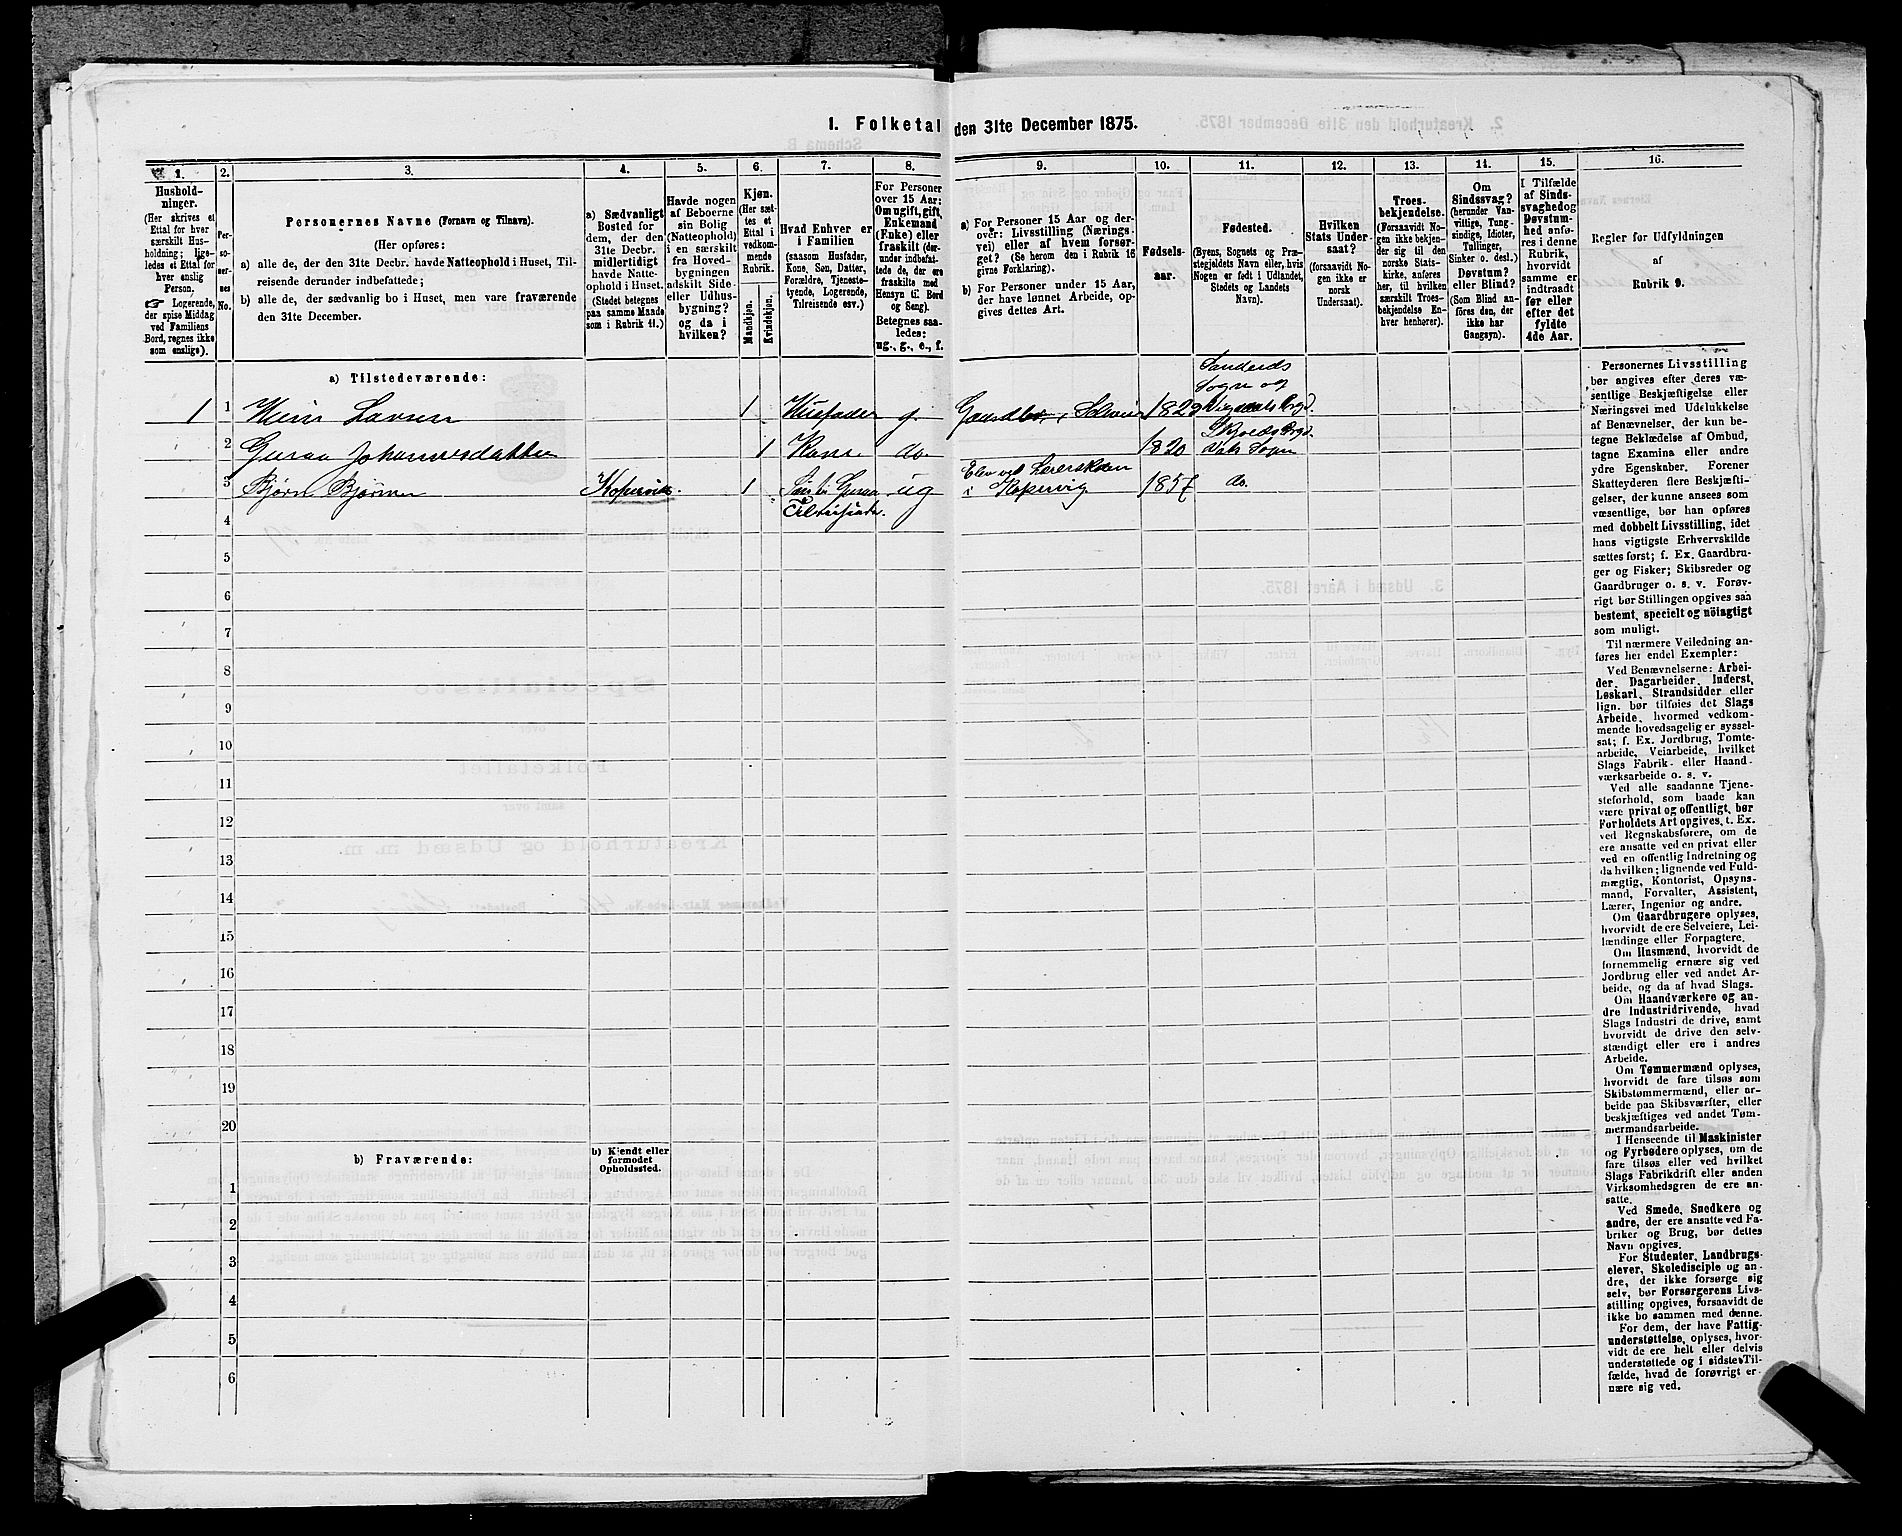 1. Folketal den 31te December 1875.
1. 2. 3. 4. 5. 6. 7. 8. 9. 10. 11. 12. 13. 14. 15. 16.
Hushold-
ninger.
(Her skrives et
Ettal for hver
særskilt Hus-
holdning; lige-
ledes et Ettal for
hver enslig
Person.
☞ Logerende,
der spise Middag
ved Familiens
Bord, regnes ikke
som enslige).
Per-
so-
ner-
nes
No.
Personernes Navne (Fornavn og Tilnavn).
(Her opføres:
a) alle de, der den 31te Decbr. havde Natteophold i Huset, Til-
reisende derunder indbefattede;
b) alle de, der sædvanlig bo i Huset, men vare fraværende
den 31te December.
a) Sædvanligt
Bosted for
dem, der den
31te Decbr.
midlertidigt
havde Natte-
ophold i Huset.
(Stedet betegnes
paa samme Maade
som i Rubrik 11.)
Havde nogen
af Beboerne
sin Bolig
(Natteophold)
i en særskilt
fra Hoved-
bygningen
adskilt Side-
eller Udhus-
bygning?
og da i
hvilken?
Kjøn.
(Her sæt-
tes et
Ettal i
vedkom-
mende
Rubrik.
Mandkjøn.
Kvindekjøn.
Hvad Enhver er
i Familien
(saasom Husfader,
Kone, Søn, Datter,
Forældre, Tjeneste-
tyende, Logerende,
Tilreisende osv.)
For Personer
over 15 Aar:
Om ugift, gift,
Enkemand
(Enke) eller
fraskilt (der-
under indbefat-
tede de, der ere
fraskilte med
Hensyn til Bord
og Seng).
Betegnes saa-
ledes:
ug., g., e., f.
a) For Personer 15 Aar og der-
over: Livsstilling (Nærings-
vei) eller af hvem forsør-
get? (Se herom den i Rubrik 16
givne Forklaring).
b) For Personer under 15 Aar,
der have lønnet Arbeide, op-
gives dettes Art.
Fødsels-
aar.
Fødested.
(Byens, Sognets og Præ-
stegjeldets Navn eller, hvis
Nogen er født i Udlandet,
Stedets og Landets
Navn).
Hvilken
Stats Under-
saat?
(forsaavidt No-
gen ikke er
norsk
Undersaat).
Troes-
bekjendelse.
(Forsaavidt No-
gen ikke bekjen-
der sig til den
norske Stats-
kirke, anføres
her, til hvilken
særskilt Troes-
bekjendelse En-
hver henhører).
Om
Sindssvag?
(herunder Van-
vittige, Tung-
sindige, Idioter,
Tullinger,
Sinker o. desl.)
Døvstum?
eller Blind?
(Som Blind an-
føres den, der
ikke har
Gangsyn).
I Tilfælde
af Sinds-
svaghed og
Døvstum-
hed anfø-
res i denne
Rubrik,
hvorvidt
samme er
indtraadt
før eller
efter det
fyldte
4de Aar.
Regler for Udfyldningen
af
Rubrik 9.
a) Tilstedeværende:
1 1 Larsen 1 Husfader g. 1829 Sogn og
2 Guraa Johannesdatter 1 Kone do. 1820 Sogn
3 Bjørn Kopervik. 1 Guraa ug Elev ved i Kopervig 1857 do.
4
5
6
7
8
9
10
11
12
13
14
15
16
17
18
19
20
b) Fraværende:
b) Kjendt eller
formodet
Opholdssted.
1
2
3
4
5
6
Personernes Livsstilling
bør angives efter deres væ-
sentlige Beskjæftigelse eller
Næringsvei med Udelukkelse
af Benævnelser, der kun be-
tegne Beklædelse af Ombud,
tagne Examina eller andre
ydre Egenskaber. Forener
Skatteyderen flere Beskjæfti-
gelser, der kunne ansees som
væsentlige, bør han opføres
med dobbelt Livsstilling, idet
hans vigtigste Erhvervskilde
sættes først; f. Ex. Gaardbru-
ger og Fisker; Skibsreder og
Gaardbruger o. s. v. Forøv-
rigt bør Stillingen opgives saa
bestemt, specielt og nöiagtigt
som muligt.
Til nærmere Veiledning an-
føres her endel Exempler:
Ved Benævnelserne: Arbei-
der, Dagarbeider, Inderst,
Løskarl, Strandsidder eller
lign. bør tilføies det Slags
Arbeide, hvormed vedkom-
mende hovedsagelig er syssel-
sat; f. Ex. Jordbrug, Tomte-
arbeide, Veiarbeide, hvilket
Slags Fabrik- eller Haand-
værksarbeide o. s. v.
Ved alle saadanne Tjene-
steforhold, som baade kan
være privat og offentligt, bør
Forholdets Art opgives, t. Ex.
ved Regnskabsførere, om de
ere ansatte ved en privat eller
ved en offentlig Indretning og
da hvilken; lignende ved Fuld-
mægtig, Kontorist, Opsyns-
mand, Forvalter, Assistent,
Lærer, Ingeniør og andre.
Om Gaardbrugere oplyses,
hvorvidt de ere Selveiere, Lei-
lændinge eller Forpagtere.
Om Husmænd, hvorvidt de
fornemmelig ernære sig ved
Jordbrug eller ved andet Ar-
beide, og da af hvad Slags.
Om Haandværkere og an-
dre Industridrivende, hvad
Slags Industri de drive, samt
hvorvidt de drive den selv-
stændigt eller ere i andres
Arbeide.
Om Tømmermænd oplyses,
hvorvidt de fare tilsøs som
Skibstømmermænd, eller ar-
beide paa Skibsværfter, eller
beskjæftiges ved andet Tøm-
mermandsarbeide.
I Henseende til Maskinister
og Fyrbødere oplyses, om de
fare tilsøs eller ved hvilket
Slags Fabrikdrift eller anden
Virksomhedsgren de ere an-
satte.
Ved Smede, Snedkere og
andre, der ere ansatte ved Fa-
briker og Brug, bør dettes
Navn opgives.
For Studenter, Landbrugs-
elever, Skoledisciple og an-
dre, der ikke forsørge sig
selv, bør Forsørgerens Livs-
stilling opgives, forsaavidt de
ikke bo sammen med denne.
For dem, der have Fattig-
understøttelse, oplyses, hvor-
vidt de ere helt eller delvis
understøttede og i sidste Til-
fælde, hvad de forøvrigt er-
nære sig ved.